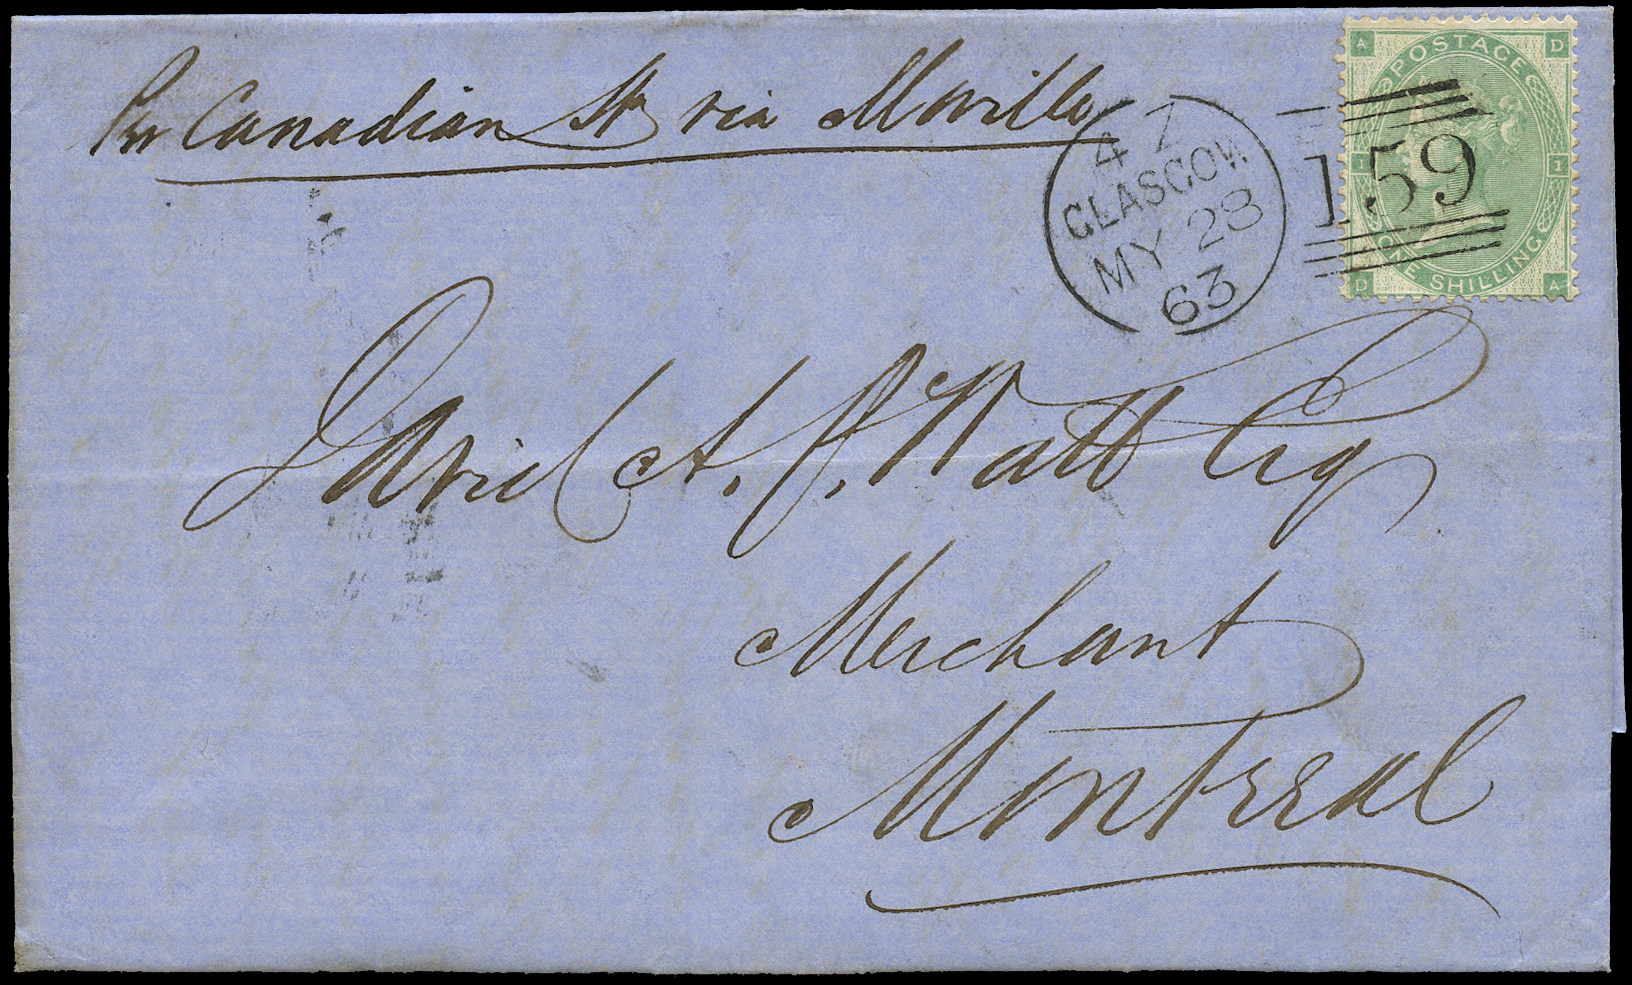 Per Canadian Str via Moville
4 Z
GLASGOW
MY 28
63
159
A D
POSTAGE
1 1
ONE SHILLING
D A
David A. P. Watt Esq
Merchant
Montreal